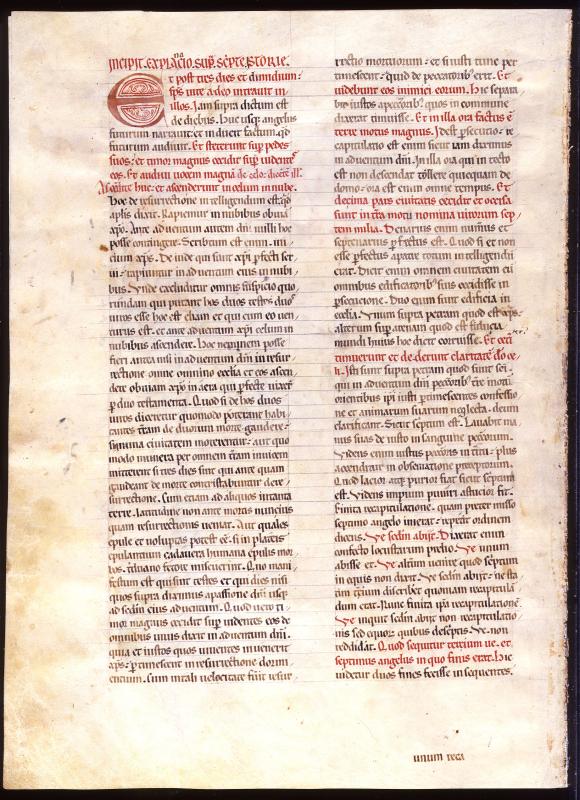 Incipit explanacio sup septe storie.
Et post tres dies et dimidium:
sps uite a deo intrauit in
illos. Iam supra dictum est
de diebus. Huc usq; angelus
futurum narrauit: et inducit factum. qd
futurum audiuit. Et steterunt sup pedes
suos: et timor magnus cecidit sup uidentes
eos. Et audiui uocem magnā de celo: dicētē ill.
Ascendite huc: et ascenderunt in celum in nube.
Hoc de resurrectione intelligendum est. qd
apls dixit. Rapiemur in nubibus obuiā
xpo. Ante aduentum autem dni nulli hoc
posse contingere. Scribtum est enim. ini
cium xps. De inde qui sunt xpi pfecti ser
ui: rapiuntur in aduentum eius in nubi
bus. Unde excluditur omnis suspicio quo
rundam qui putant hos duos testes duos
uiros esse
turus est. et ante aduentum xpi celum in
nubibus ascendere. Hoc neminem posse
fieri antea nisi in aduentum dni in resur
rectione omne omnino ecclia et eos ascen
dere obuiam xpo in aera qui pfecte uixer
p duo testamenta. Quod si de hos duos
uiros diceretur quomodo poterant habi
tantes tram de duorum morte gaudere:
si in una ciuitatem morerentur: aut quo
modo munera per omnem tram inuicem
mitterent si tres dies sint qui ante quam
gaudeant de morte contristabuntur de re
surrectione. Sum etiam ad aliquos in tanta
terre latitudine non ante mortis nuncius
quam resurrectionis ueniat. Aut quales
epule et uoluptas potest eē. si in plateis
epulantium cadauera humana epulis mor
bos. triduano fetore miscuerint. Quo mani
festum est qui sint testes et qui dies nisi
quos supra diximus a passione dni usq;
ad sedm eius aduentum. Quod uero ti
mor magnus cecidit sup uidentes eos de
omnibus uiuis dixit in aduentum dni.
quia et iustos quos uiuentes inuenerit
xps. ptimescent in resurrectione dormi
entium. Sum in tali uelocitate fuit resur
rectio mortuorum: et si iusti tunc per
timescent: quid de peccatorib; erit. Et
uidebunt eos inimici eorum. Hic separa
bit iustos a peccatorib; quos in commune
dixerat timuisse. Et in illa ora factus ē
terre motus magnus. Id est psecutio: re
capitulatio est enim sicut iam diximus
in aduentum dni. In illa ora qui in tecto
est non descendat tollere quicquam de
domo: ora est enim omne tempus. Et
decima pars ciuitatis cecidit et occisa
sunt in trā motu nomina uirorum sep
tem milia. Denarius enim numus et
septenarius pfectus est. Quod si et non
esse pfectus a parte totum intelligendū
erat. Dicit enim omnem ciuitatem cū
omnibus edificatorib; suis cecidisse in
psecutione. Duo enim sunt edificia in
ecclia. Unum supra petram quod est xps.
alterum sup arenam quod est fiducia
mundi huius hoc dicit corruisse. Et cetī
timuerunt et dederunt claritatē do ce
li. Isti sunt supra petram quod sunt sci.
qui in aduentū dni peccatorib; tre motū
orientibus ipi iusti ptimescentes confessio
ne et animarum suarum neglecta. deum
clarificant. Sicut septum est. Lauabit ma
nus suas de iusto in sanguine peccorum.
Videns enim iustus peccatoris interitū: plus
accenditur in obseruatione preceptorum.
Quod lacior atq; purior fiat sicut septum
est. Videns impium puniri astucior fit.
Finita recapitulatione. quam preter misso
septimo angelo inierat: reperit ordinem
dicens. Ve scdm abijt. Dixerat enim
confecto locustarum prelio. Ve unum
abisse et. Ve alium uenire quod septum
in equis non dixit. Ve scdm abijt: ne sta
tim tercium discribet quoniam recapitulā
dum erat. Nunc finita ipa recapitulatione.
Ve inquit scdm abijt non recapitulatio
nis sed equor quibus descriptis. Ve. non
reddidat. Quod sequitur tercium ue. et
septimus angelus in quo finis erat. Hic
uidetur duos fines fecisse in sequentes.
unum reca